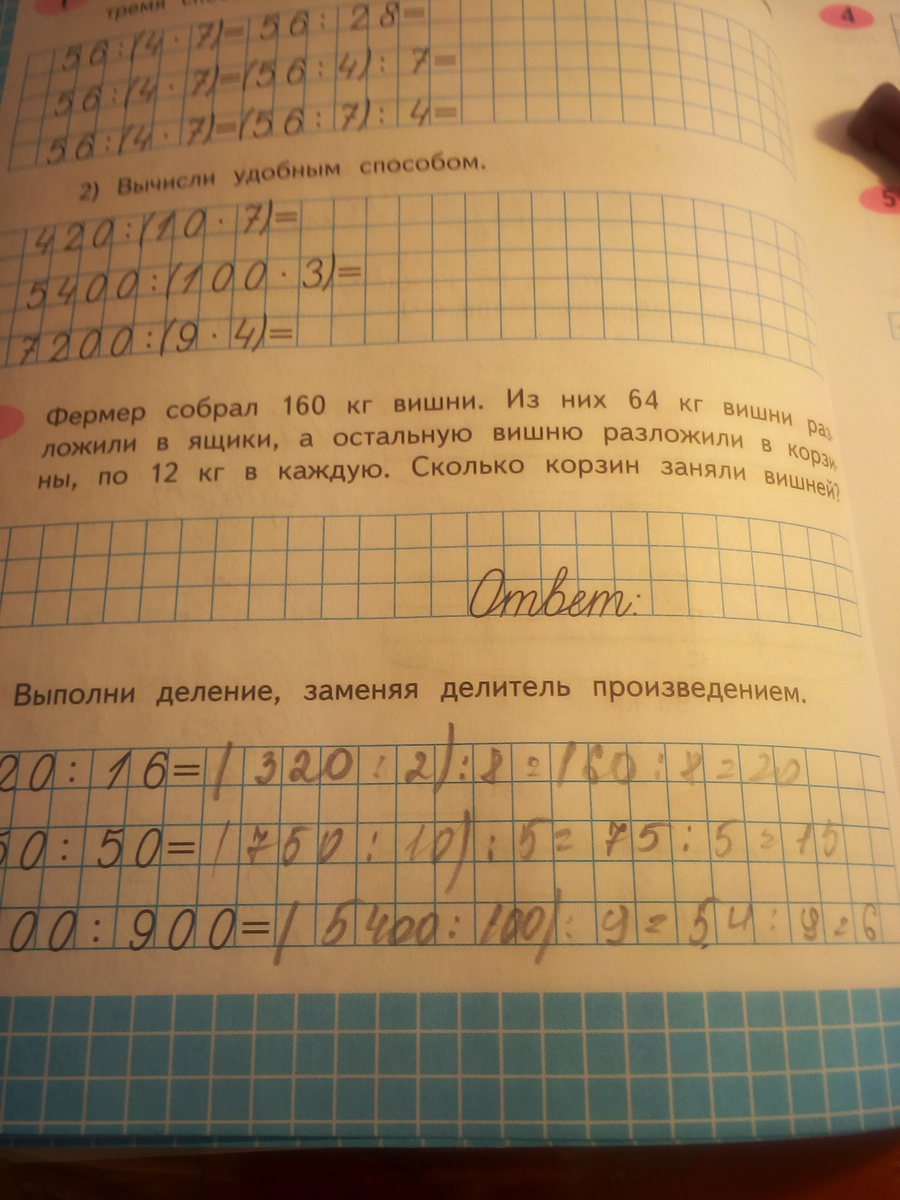 1
тремя
4
56:(4·7)=56:28=
56:(4·7)=(56:4):7=
56:(4·7)=(56:7):4=
2) Вычисли удобным способом.
5
420:(10·7)=
5400:(100·3)=
7200:(9·4)=
Фермер собрал 160 кг вишни. Из них 64 кг вишни раз
ложили в ящики, а остальную вишню разложили в корзи
ны, по 12 кг в каждую. Сколько корзин заняли вишней?
Ответ:
Выполни деление, заменяя делитель произведением.
20:16=(320:2):8=160:8=20
50:50=(750:10):5=75:5=15
00:900=(5400:100):9=54:9=6